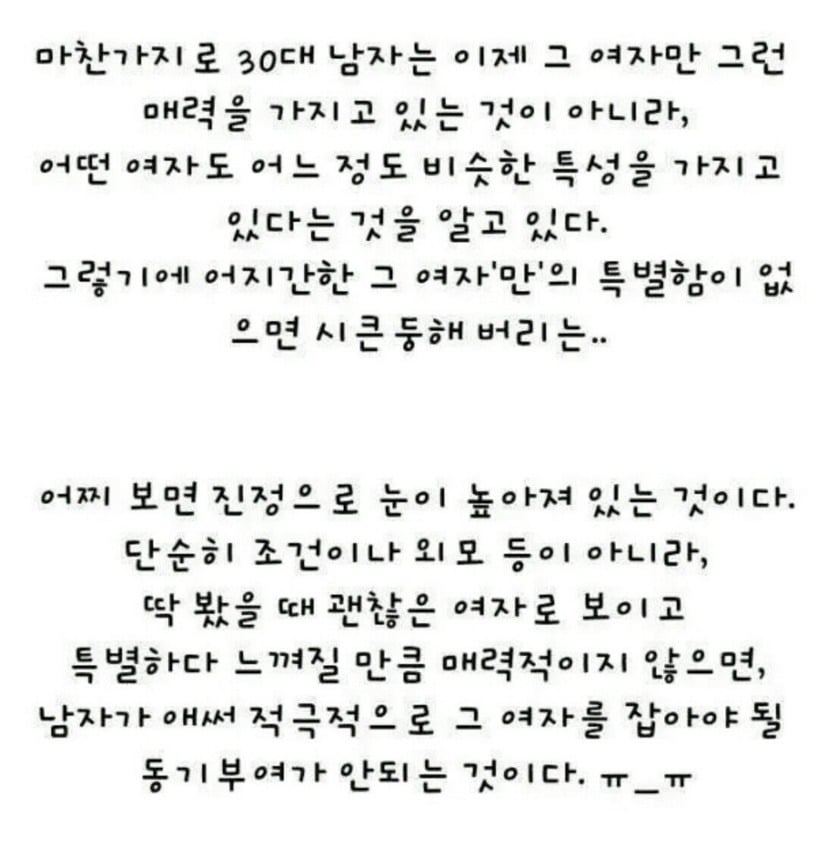 마찬가지로 30대 남자는 이제 그 여자만 그런
매력을 가지고 있는 것이 아니라,
어떤 여자도 어느 정도 비슷한 특성을 가지고
있다는 것을 알고 있다.
그렇기에 어지간한 그 여자'만'의 특별함이 없
으면 시큰둥해 버리는..
어찌 보면 진정으로 눈이 높아져 있는 것이다.
단순히 조건이나 외모 등이 아니라,
딱 봤을 때 괜찮은 여자로 보이고
특별하다 느껴질 만큼 매력적이지 않으면,
남자가 애써 적극적으로 그 여자를 잡아야 될
동기부여가 안되는 것이다. ㅠ_ㅠ